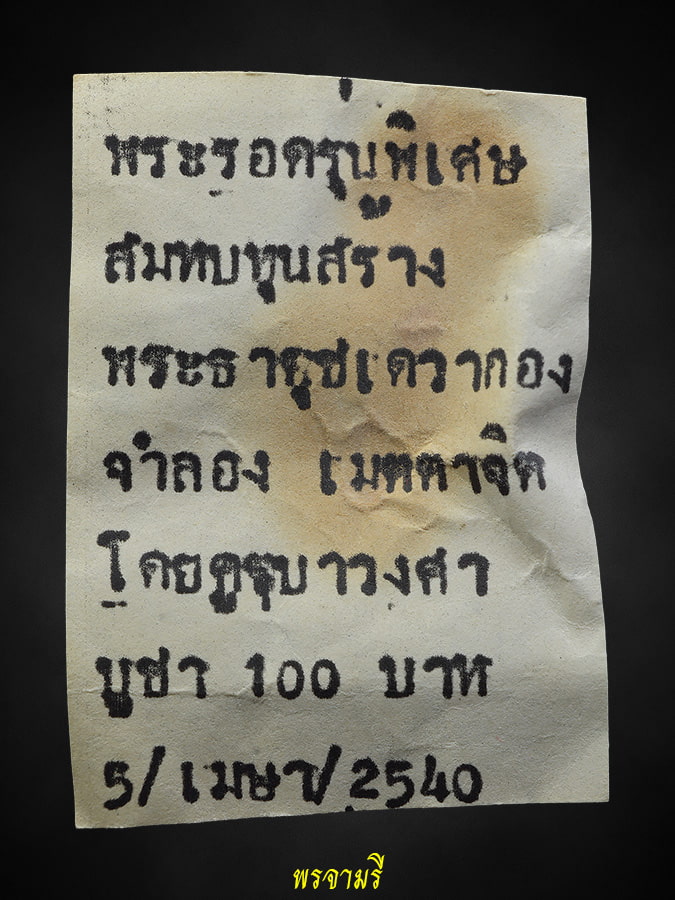 พระรอดรุ่นพิเศษ
สมทบทุนสราง
พระธาตุชเดวากอง
จำลอง เมตตาจิต
โดยครูบาวงศา
บูชา 100 บาท
5/เมษา/2540
พรจามรี